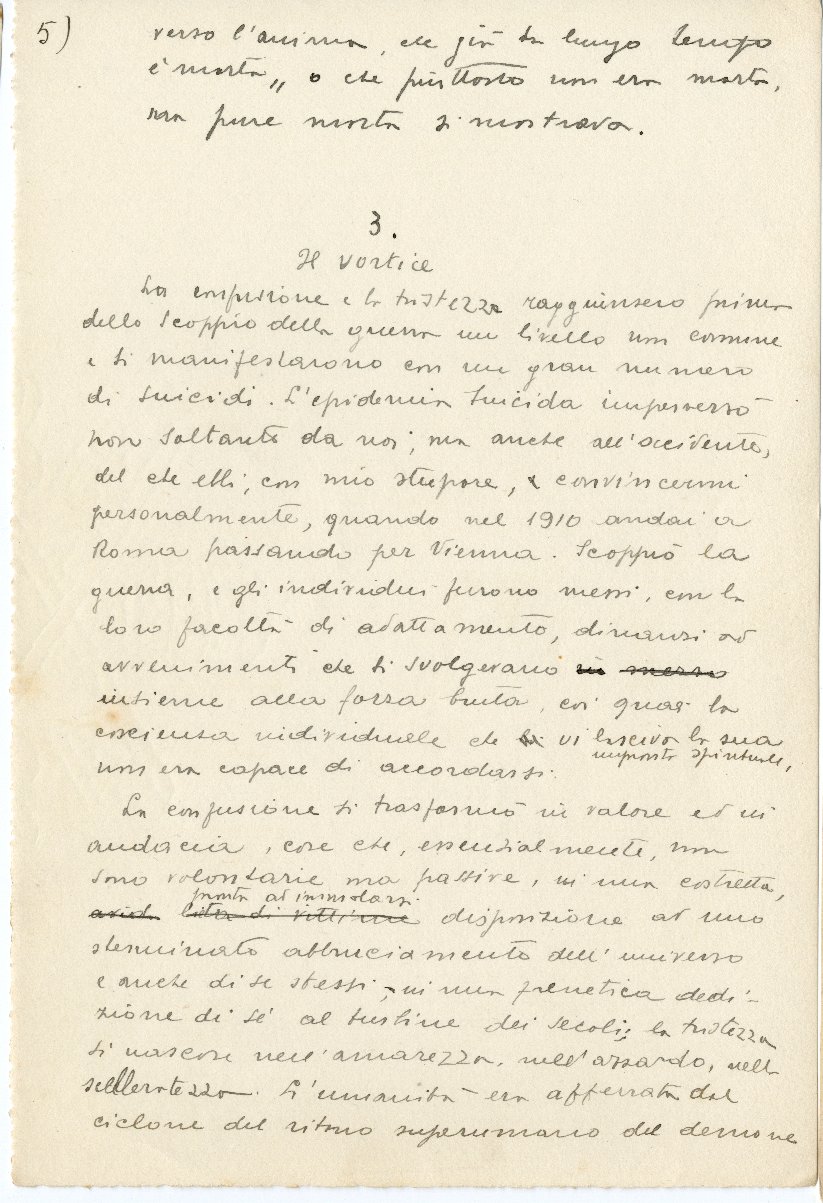 5)
verso l'anima, che già da lungo tempo
è morta„ o che piuttosto non era morta,
ma pure morta si mostrava.
3.
Il vortice
La confusione e la tristezza raggiunsero prima
dello scoppio della guerra un livello non comune
e si manifestarono con un gran numero
di suicidi. L'epidemia suicida imperversò
non soltanto da noi, ma anche all'occidente,
del che ebbi, con mio stupore, a convincermi
personalmente, quando nel 1910 andai a
Roma passando per Vienna. Scoppiò la
guerra, e gli individui furono messi, con la
loro facoltà di adattamento, dinanzi ad
avvenimenti che si svolgevano in mezzo
insieme alla forza bruta, coi quai la
coscienza individuale che vi lasciva la sua
impronta spirituale,
non era capace di accordarsi.
La confusione si trasformò in valore ed in
audacia, cose che, essenzialmente, non
sono volontarie ma passive, in una costretta,
pronta ad immolarsi
disposizione ad uno
sterminato abbruciamento dell'universo
e anche di se stessi, in una frenetica dedi-
zione di sé al turbine dei secoli; la tristezza
si nascose nell'amarezza, nell'azzardo, nella
scelleratezza. L'umanità era afferrata dal
ciclone del ritmo superumano del demone